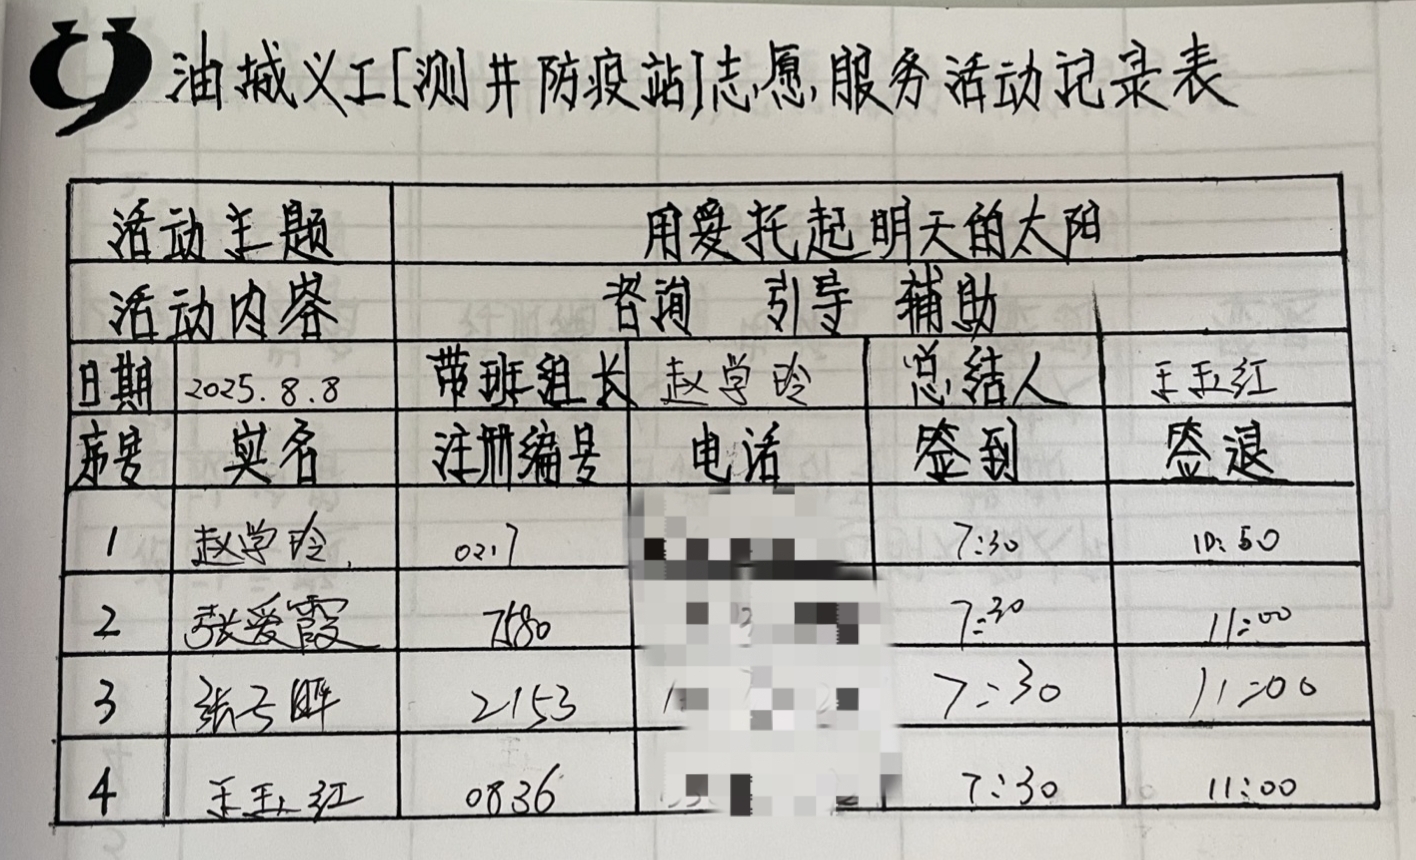 油城义工[测井防疫站]志愿服务活动记录表
活动主题 用爱托起明天的太阳
活动内容 咨询 引导 辅助
日期 2025.8.8 带班组长 赵学玲 总结人 王玉红
序号 实名 注册编号 电话 签到 签退
1 赵学玲 0217 7:30 10:50
2 张爱霞 7580 7:30 11:00
3 2153 7:30 11:00
4 王玉红 0836 7:30 11:00